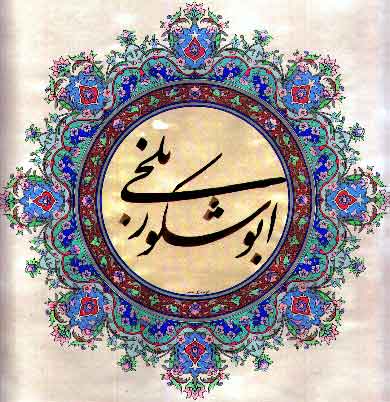 ابوشکور بلخی